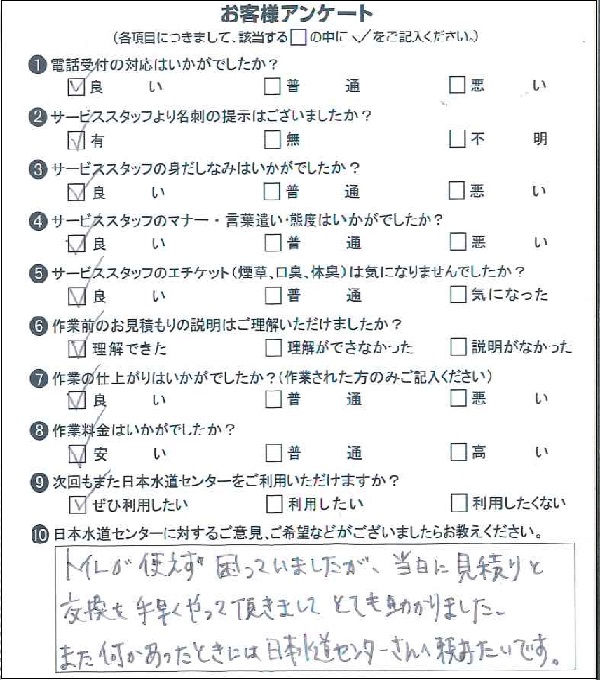 お客様アンケート
(各項目につきまして、該当する□の中に✓をご記入ください。)
❶電話受付の対応はいかがでしたか?
☑良い □普通 □悪い
❷サービススタッフより名刺の提示はございましたか?
☑有 □無 □不明
❸サービススタッフの身だしなみはいかがでしたか?
☑良い □普通 □悪い
❹サービススタッフのマナー・言葉遣い・態度はいかがでしたか?
☑良い □普通 □悪い
❺サービススタッフのエチケット(煙草、口臭、体臭)は気になりませんでしたか?
☑良い □普通 □気になった
❻作業前のお見積もりの説明はご理解いただけましたか?
☑理解できた □理解ができなかった □説明がなかった
❼作業の仕上がりはいかがでしたか?(作業された方のみご記入ください)
☑良い □普通 □悪い
❽作業料金はいかがでしたか?
☑安い □普通 □高い
❾次回もまた日本水道センターをご利用いただけますか?
☑ぜひ利用したい □利用したい □利用したくない
❿日本水道センターに対するご意見、ご希望などがございましたらお教えください。
トイレが使えず困っていましたが、当日に見積りと
交換を手早くやって頂きましてとても助かりました。
また何かあったときには日本水道センターさんへ頼みたいです。